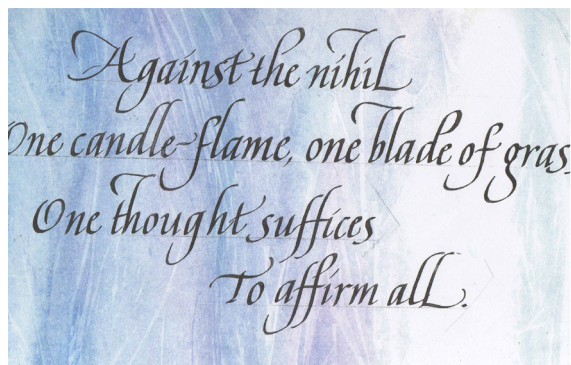 Against the nihil
One candle-flame, one blade of gras
One thought suffices
To affirm all.